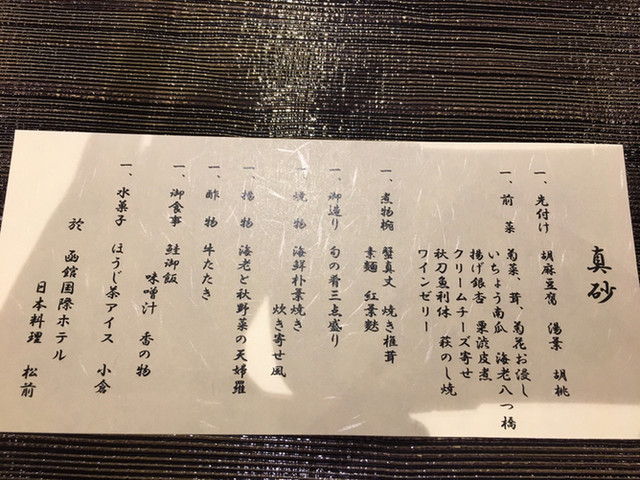 真砂
一、先付け 胡麻豆腐 湯葉 胡桃
一、前菜 菊菜、茸、菊花お浸し
いちょう南瓜 海老八つ橋
揚げ銀杏 栗渋皮煮
クリームチーズ寄せ
秋刀魚利休 萩のし焼
ワインゼリー
一、煮物椀 蟹真丈 焼き椎茸
素麺 紅葉麩
一、御造り 旬の肴三点盛り
一、焼物 海鮮朴葉焼き
炊き寄せ風
一、揚物 海老と秋野菜の天婦羅
一、酢物 牛たたき
一、御食事 鮭御飯
味噌汁 香の物
一、水菓子 ほうじ茶アイス 小倉
於 函館国際ホテル
日本料理 松前